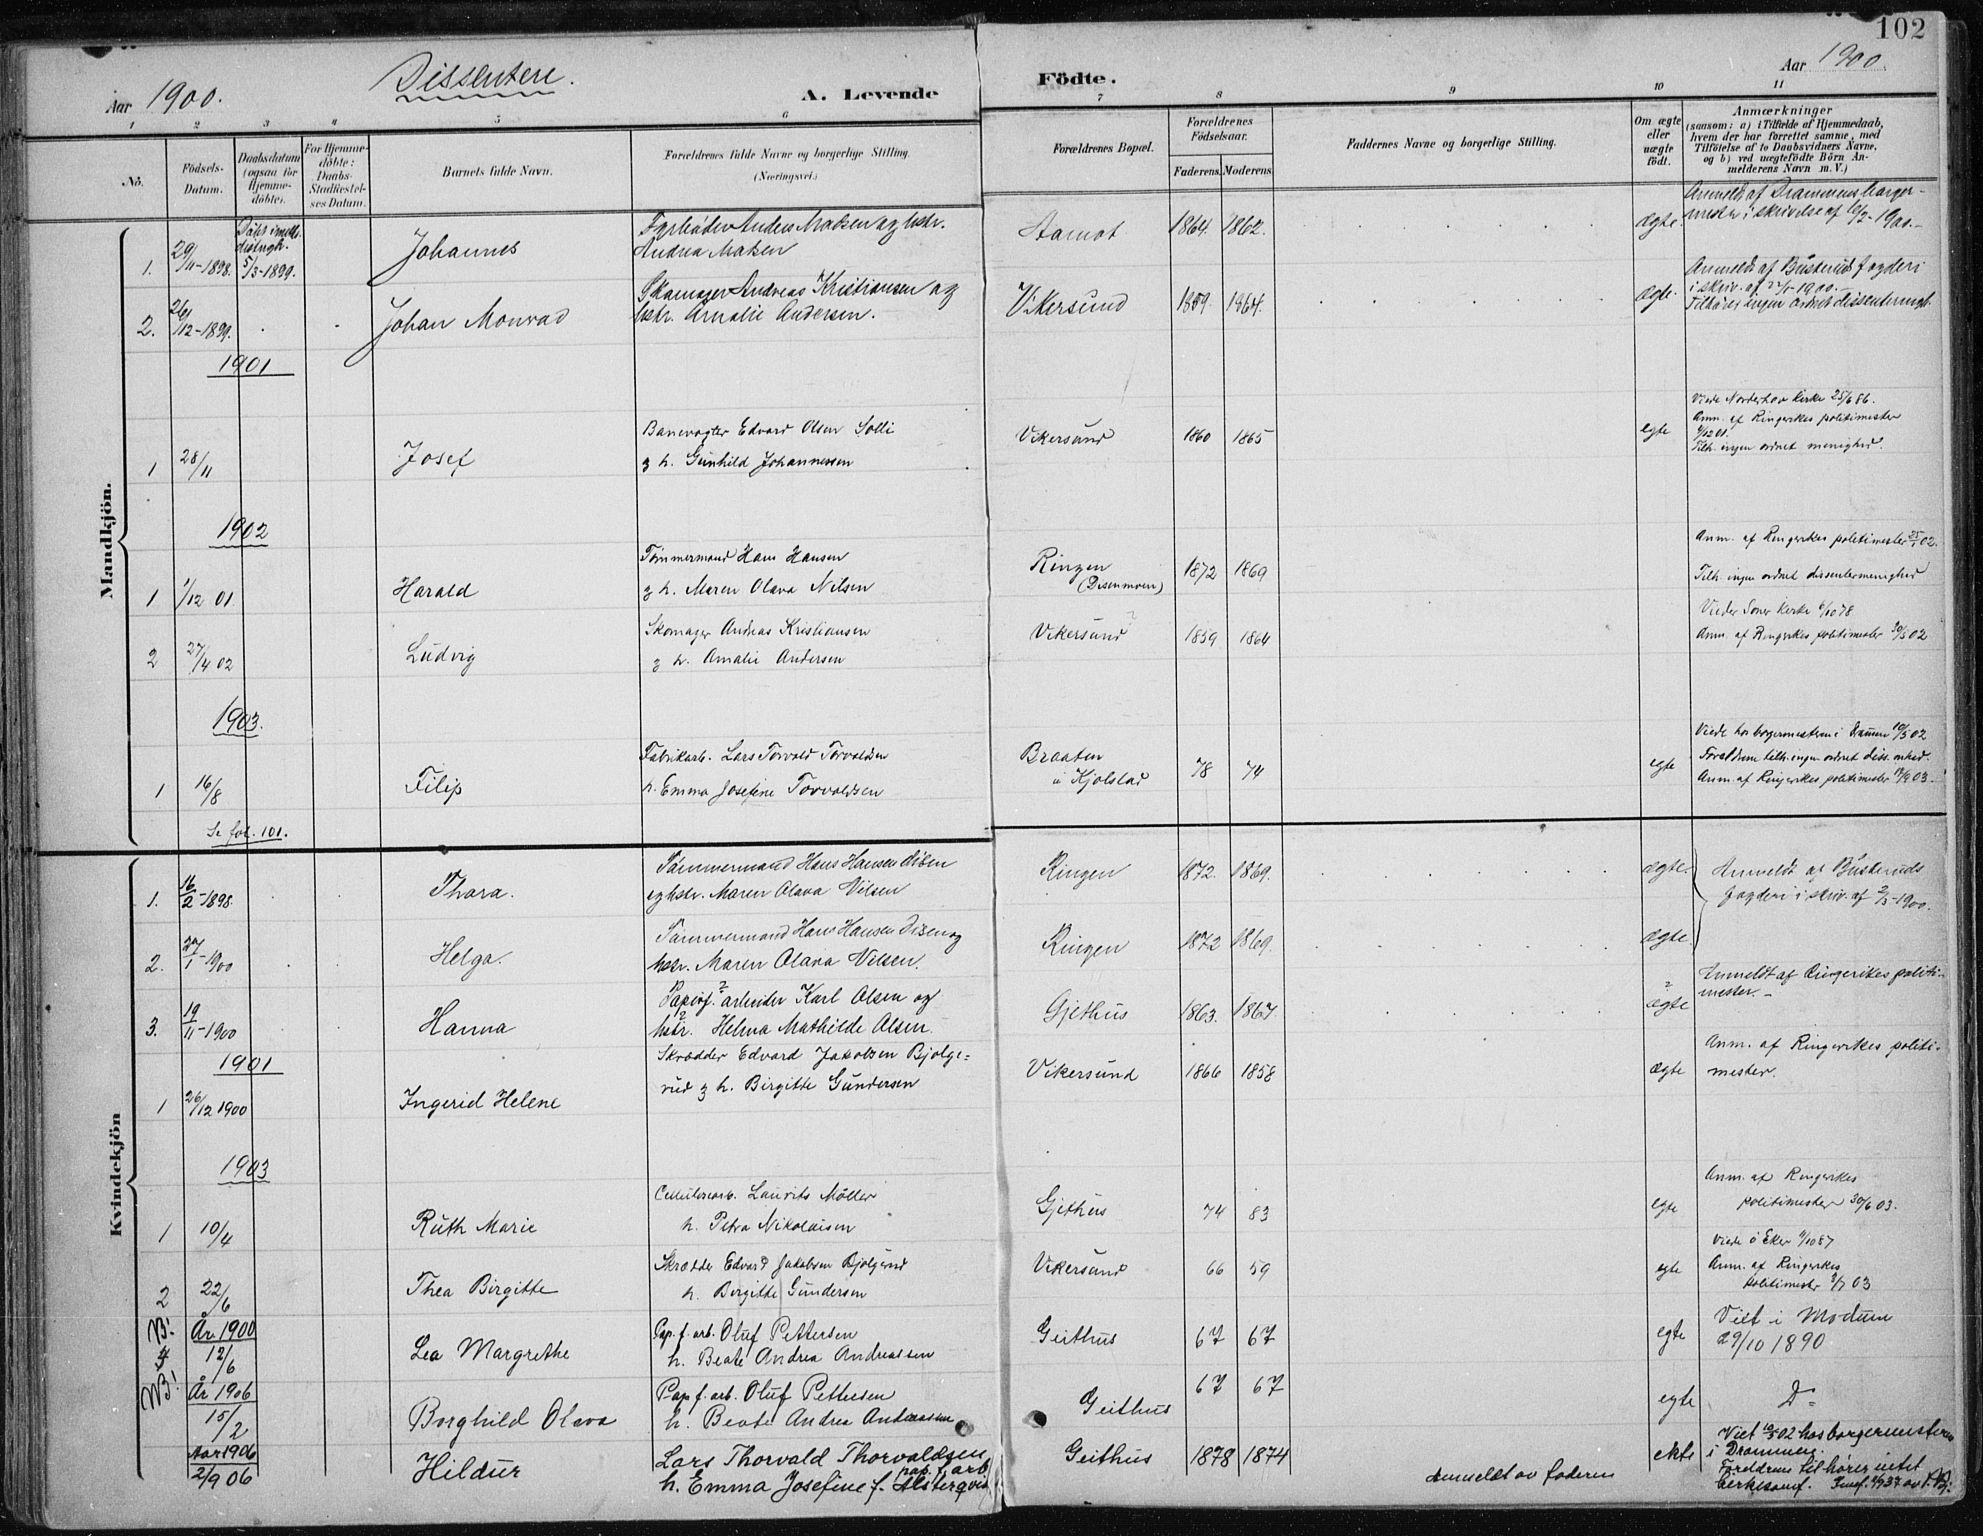 102
Aar 1900.
Dissentere.
A. Levende
Födte.
Aar 1900.
1 2 3 4 5 6 7 8 9 10 11
No.
Födsels-Datum.
Daabsdatum (ogsaa for Hjemmedöbte).
For Hjemmedöbte: Daabs-Stadfæstelses Datum.
Barnets fulde Navn.
Forældrenes fulde Navne og borgerlige Stilling. (Næringsvei.)
Forældrenes Bopæl.
Forældrenes Födselsaar.
Faderens. Moderens.
Faddernes Navne og borgerlige Stilling.
Om ægte eller uægte födt.
Anmærkninger
(saasom: a) i Tilfælde af Hjemmedaab,
hvem der har forrettet samme, med
Tilföielse af to Daabsvidners Navne,
og b) ved uægtefödte Börn An-
melderens Navn m. V.)
Mandkjön.
1. 29/11-1898. 5/3-1899. Johannes
Fyrbøder Anders Madsen og hstr.
Andrea Madsen
Aamot 1864. 1862. ægte.
Anmeldt af Drammens borger-
mester i skrivelse af 10/2-1900.-
2. 26/12-1899. Johan Monrad
Skomager Andreas Kristiansen og
hstr. Amalie Andersen.
Vikersund 1859. 1864. ægte.
Anmeldt af Buskeruds fogderi
i skriv. af 27/1-1900.-
Tilhører ingen ordnet dissentermgh.
1901
1 28/11 Josef
Banevogter Edvard Olsen Solli
og h. Gunhild Johannessen
Vikersund 1860 1865 egte
Viede Norderhov kirke 25/6 86.
Anm. af Ringerikes politimester
Tilh. ingen ordnet menighed.
1902
1 1/12 01 Harald
Tømmermand Hans Hansen
og h. Maren Olava Nilsen
Ringen (Disenmoen) 1872 1869
Anm. af Ringerikes politimester 25/1 02.
Tilh. ingen ordnet dissentermenighed
2 27/4 02 Ludvig
Skomager Andreas Kristiansen
og h. Amalie Andersen
Vikersund 1859 1864
Anm. af Ringerikes politimester 30/5 02
1903.
1 16/8 Filip
Fabrikarb. Lars Torvald Torvaldsen
h. Emma Josefine Torvaldsen
Braaten u. Kjølstad 78 74 egte
Viede hos borgermesteren i Drammen 10/5 02
Forældrene tilh. ingen ordnet diss. mhed.
Anm. af Ringerikes politimester 03.-
Se fol. 101.
Kvindekjön
1. 16/2-1898. Thora.
Tømmermand Hans Hansen Disen
og hstr. Maren Olava Nilsen
Ringen 1872. 1869. ægte.
Anmeldt af Buskeruds
fogderi i skriv. af 2/3-1900.
2. 27/1-1900 Helga.
Tømmermand Hans Hansen Disen og
hstr. Maren Olava Nilsen.
Ringen 1872 1869. ægte.
3. 19/11-1900 Hanna
Papirf.arbeider Karl Olsen og
hstr. Helma Mathilde Olsen.
Gjethus 1863. 1867. ægte
Anmeldt af Ringerikes politi-
mester.-
1901
1 26/12 1900 Ingerid Helene
Skrædder Edvard Jakobsen Bjølge=
rud og h. Birgitte Gundersen
Vikersund 1866 1858 ægte
Anm. af Ringerikes politi-
mester.
1903
1 10/4 Ruth Marie
Cellulosearb. Laurits Møller
h. Petra Nikolaisen
Gjethus 74 83 egte
Anm. af Ringerikes
politimester 30/6 03.
2 22/6 Thea Birgitte
Skrædder Edvard Jakobsen Bjølgerud
h. Birgitte Gundersen
Vikersund 66 59 egte
Viede i Eker 1/10 87
Anm. af Ringerikes
politimester 3/7 03
År 1900
12/6 Lea Margrethe
Pap.f.arb. Oluf Pettersen
h. Beate Andrea Andreassen
Geithus 67 67 egte
Viet i Modum
29/10 1890
År 1906
15/2 Borghild Olava
Pap.f.arb. Oluf Pettersen
h. Beate Andrea Andreassen
Geithus 67 67 egte
Do
Aar 1906
2/9 06 Hildur
Lars Thorvald Thorvaldsen
pap.f.arb.
h. Emma Josefine f. Alsterqvist
Geithus 1878 1874
Anmeldt av faderen
ekte
Viet 10/5 02 hos borgermesteren
i Drammen.
Foreldrene tilhører intet
kirkesamf.